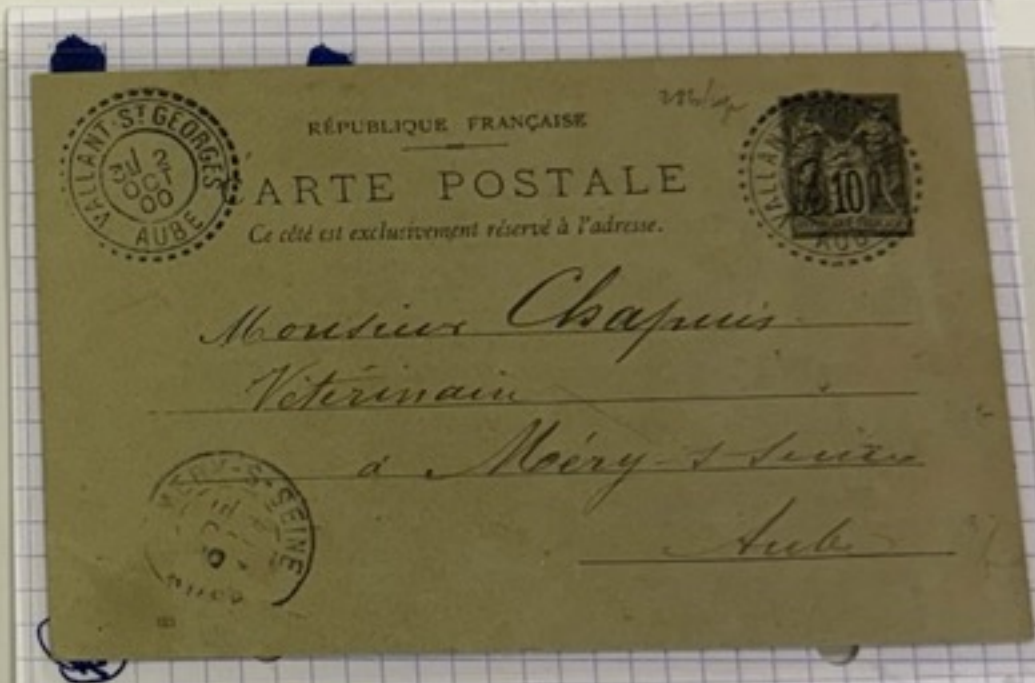 VALLANT-ST GEORGES
2
31
OCT
00
AUBE
RÉPUBLIQUE FRANÇAISE
CARTE POSTALE
Ce côté est exclusivement réservé à l'adresse.
VALLAN
10
AUB
Monsieur Chapuis
Vétérinaire
à Méry-s-Seine
Aube
MERY-S-SEINE